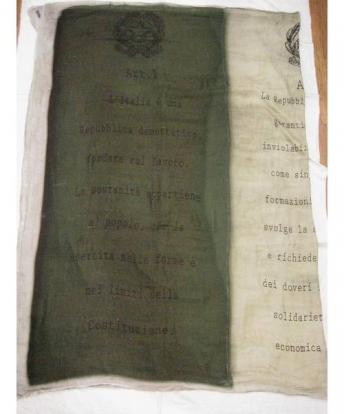 Art.1
L'Italia è una
Repubblica democratica,
fondata sul lavoro.
La sovranità appartiene
al popolo, che la
esercita nelle forme e
nei limiti della
Costituzione.
A
La Repubbl
garanti
inviolabi
come sin
formazioni
svolge la
e richiede
dei doveri
solidariet
economica